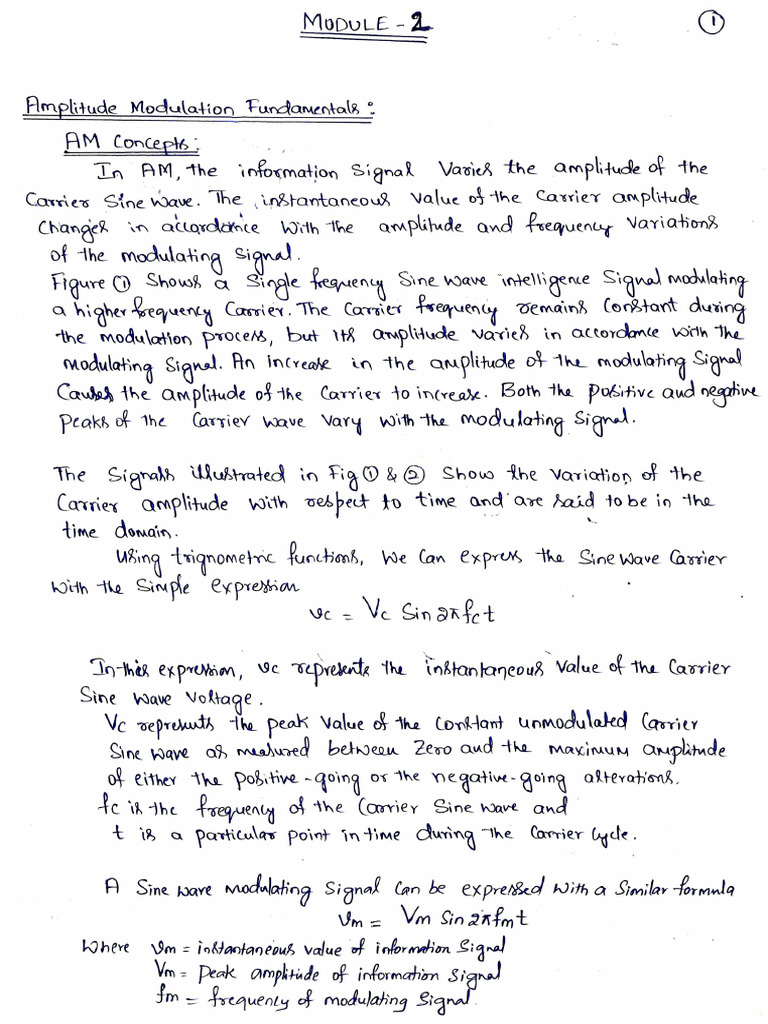 MODULE - 2
①
Amplitude Modulation Fundamentals :
AM Concepts :
In AM, the information Signal Varies the amplitude of the
Carrier Sine Wave. The instantaneous Value of the Carrier amplitude
Changes in accordance With the amplitude and frequency Variations
of the modulating Signal.
Figure ① Shows a Single frequency Sine wave intelligence Signal modulating
a higher frequency Carrier. The Carrier frequency remains Constant during
the modulation process, but its amplitude varies in accordance with the
modulating Signal. An increase in the amplitude of the modulating Signal
Causes the amplitude of the Carrier to increase. Both the Positive and negative
Peaks of the Carrier wave Vary with the modulating Signal.
The Signals illustrated in Fig ① & ② Show the Variation of the
Carrier amplitude with respect to time and are said to be in the
time domain.
Using trignometric functions, We Can express the Sine wave Carrier
With the Simple expression
vc = Vc Sin 2πfct
In this expression, vc represents the instantaneous Value of the Carrier
Sine wave Voltage.
Vc represents the peak Value of the Constant unmodulated Carrier
Sine wave as measured between Zero and the maximum amplitude
of either the Positive-going or the negative-going alterations.
fc is the frequency of the Carrier Sine wave and
t is a particular point in time during the Carrier Cycle.
A Sine wave modulating Signal Can be expressed with a Similar formula
Vm = Vm Sin 2πfmt
Where Vm = instantaneous value of information Signal
Vm = Peak amplitude of information Signal
fm = frequency of modulating Signal.